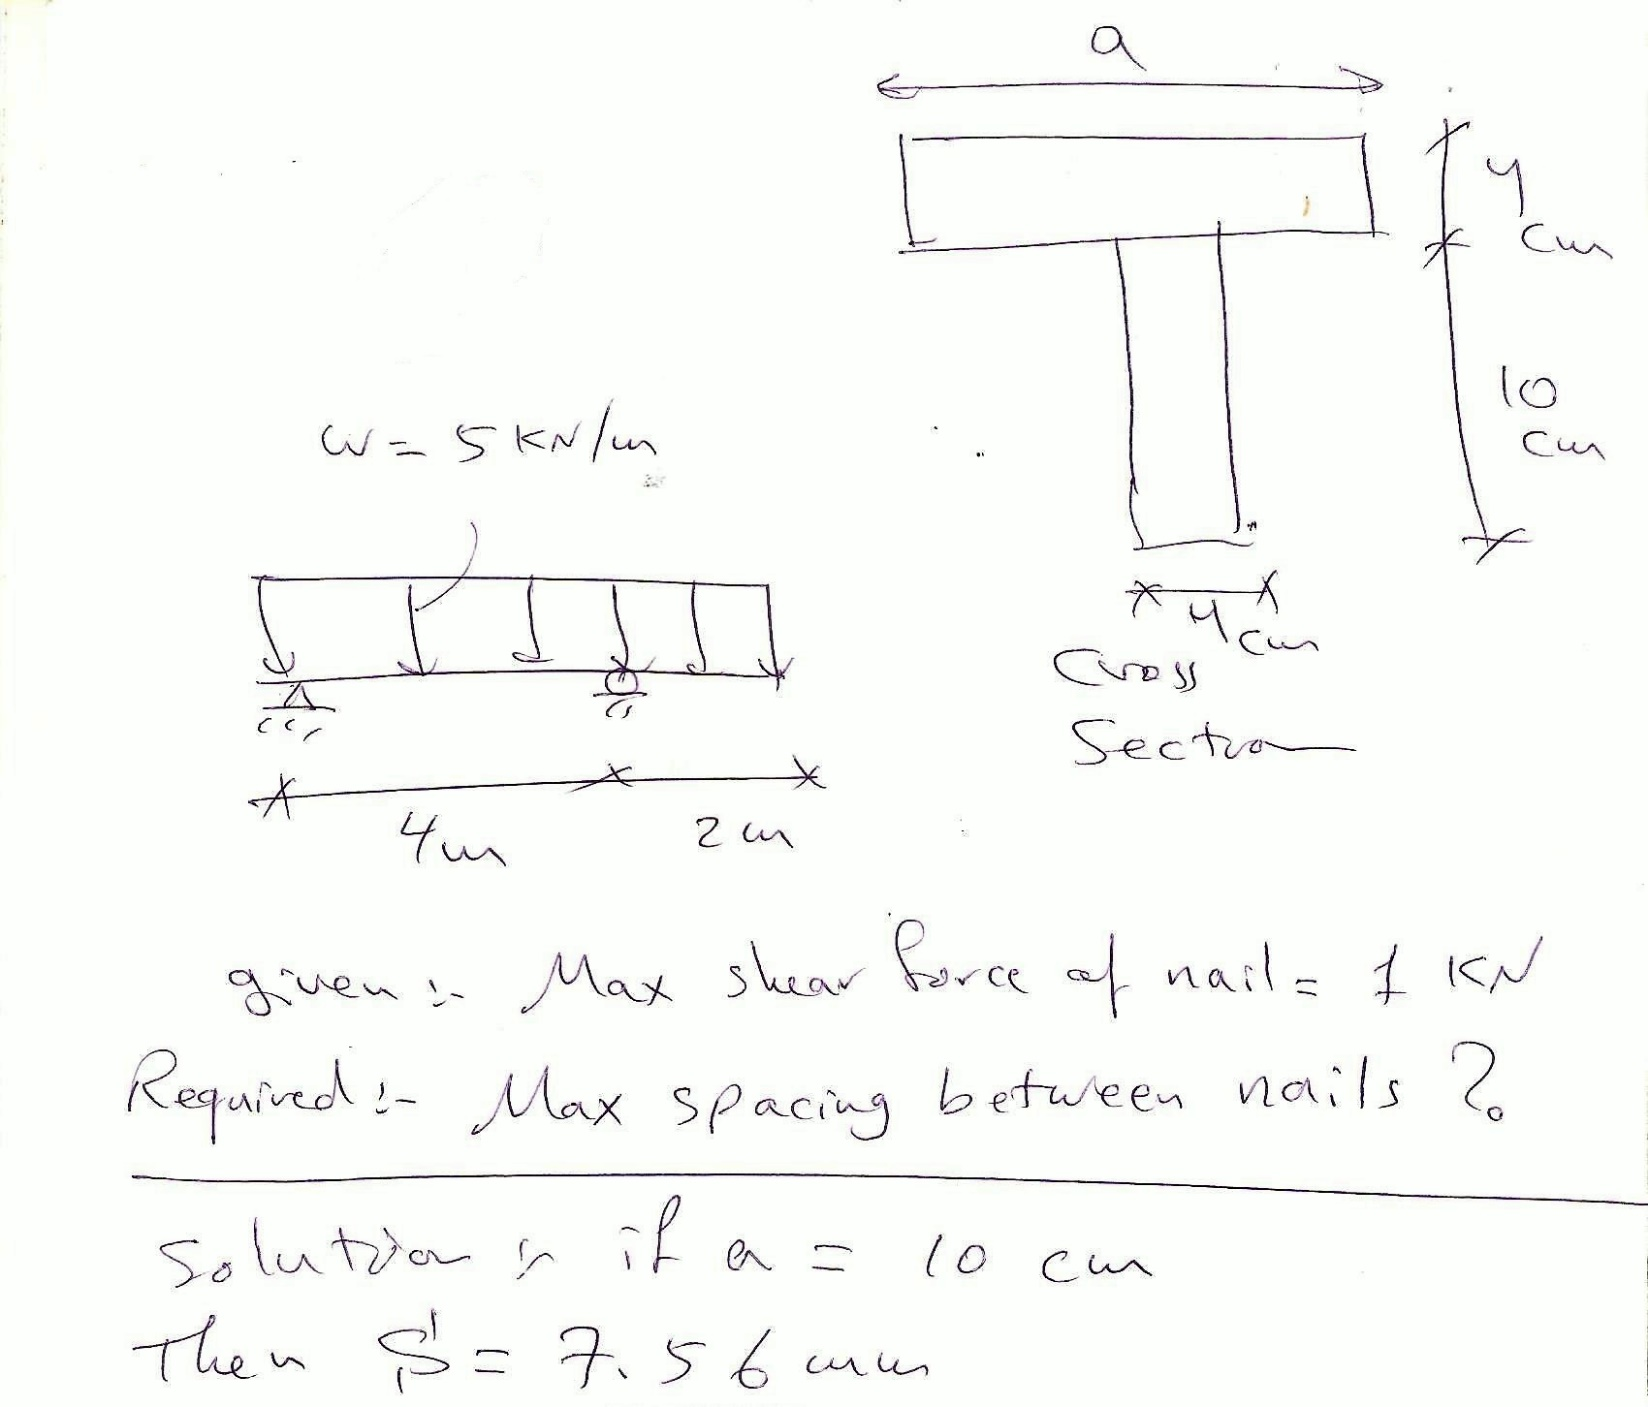 a
4
cm
10
cm
w = 5 KN/m
4 cm
Cross
Section
4m
2m
given :- Max shear force of nail = 1 KN
Required :- Max spacing between nails ?
Solution :- if a = 10 cm
Then S = 7.56 mm